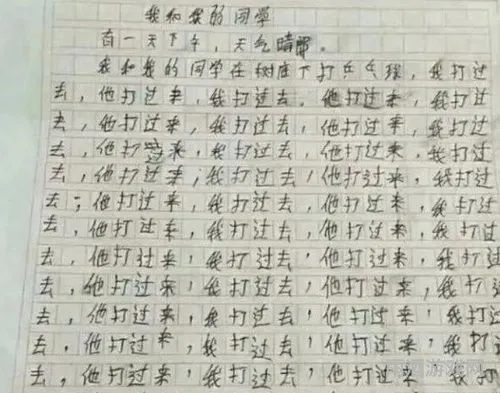 我和我的同学
有一天下午，天气晴朗。
我和我的同学在树底下打乒乓球，我打过
去，他打过来，我打过去，他打过来，我打过
去，他打过来，我打过去，他打过来，我打过
去，他打过来，我打过去，他打过来，我打过
去，他打过来，我打过去，他打过来，我打过
去，他打过来，我打过去，他打过来，我打过
去，他打过来，我打过去，他打过来，我打过
去，他打过来，我打过去，他打过来，我打过
去，他打过来，我打过去，他打过来，我打过
去，他打过来，我打过去，他打过来，我打过
去，他打过来，我打过去，他打过来，我打过
去，他打过来，我打过去，他打过来，我打